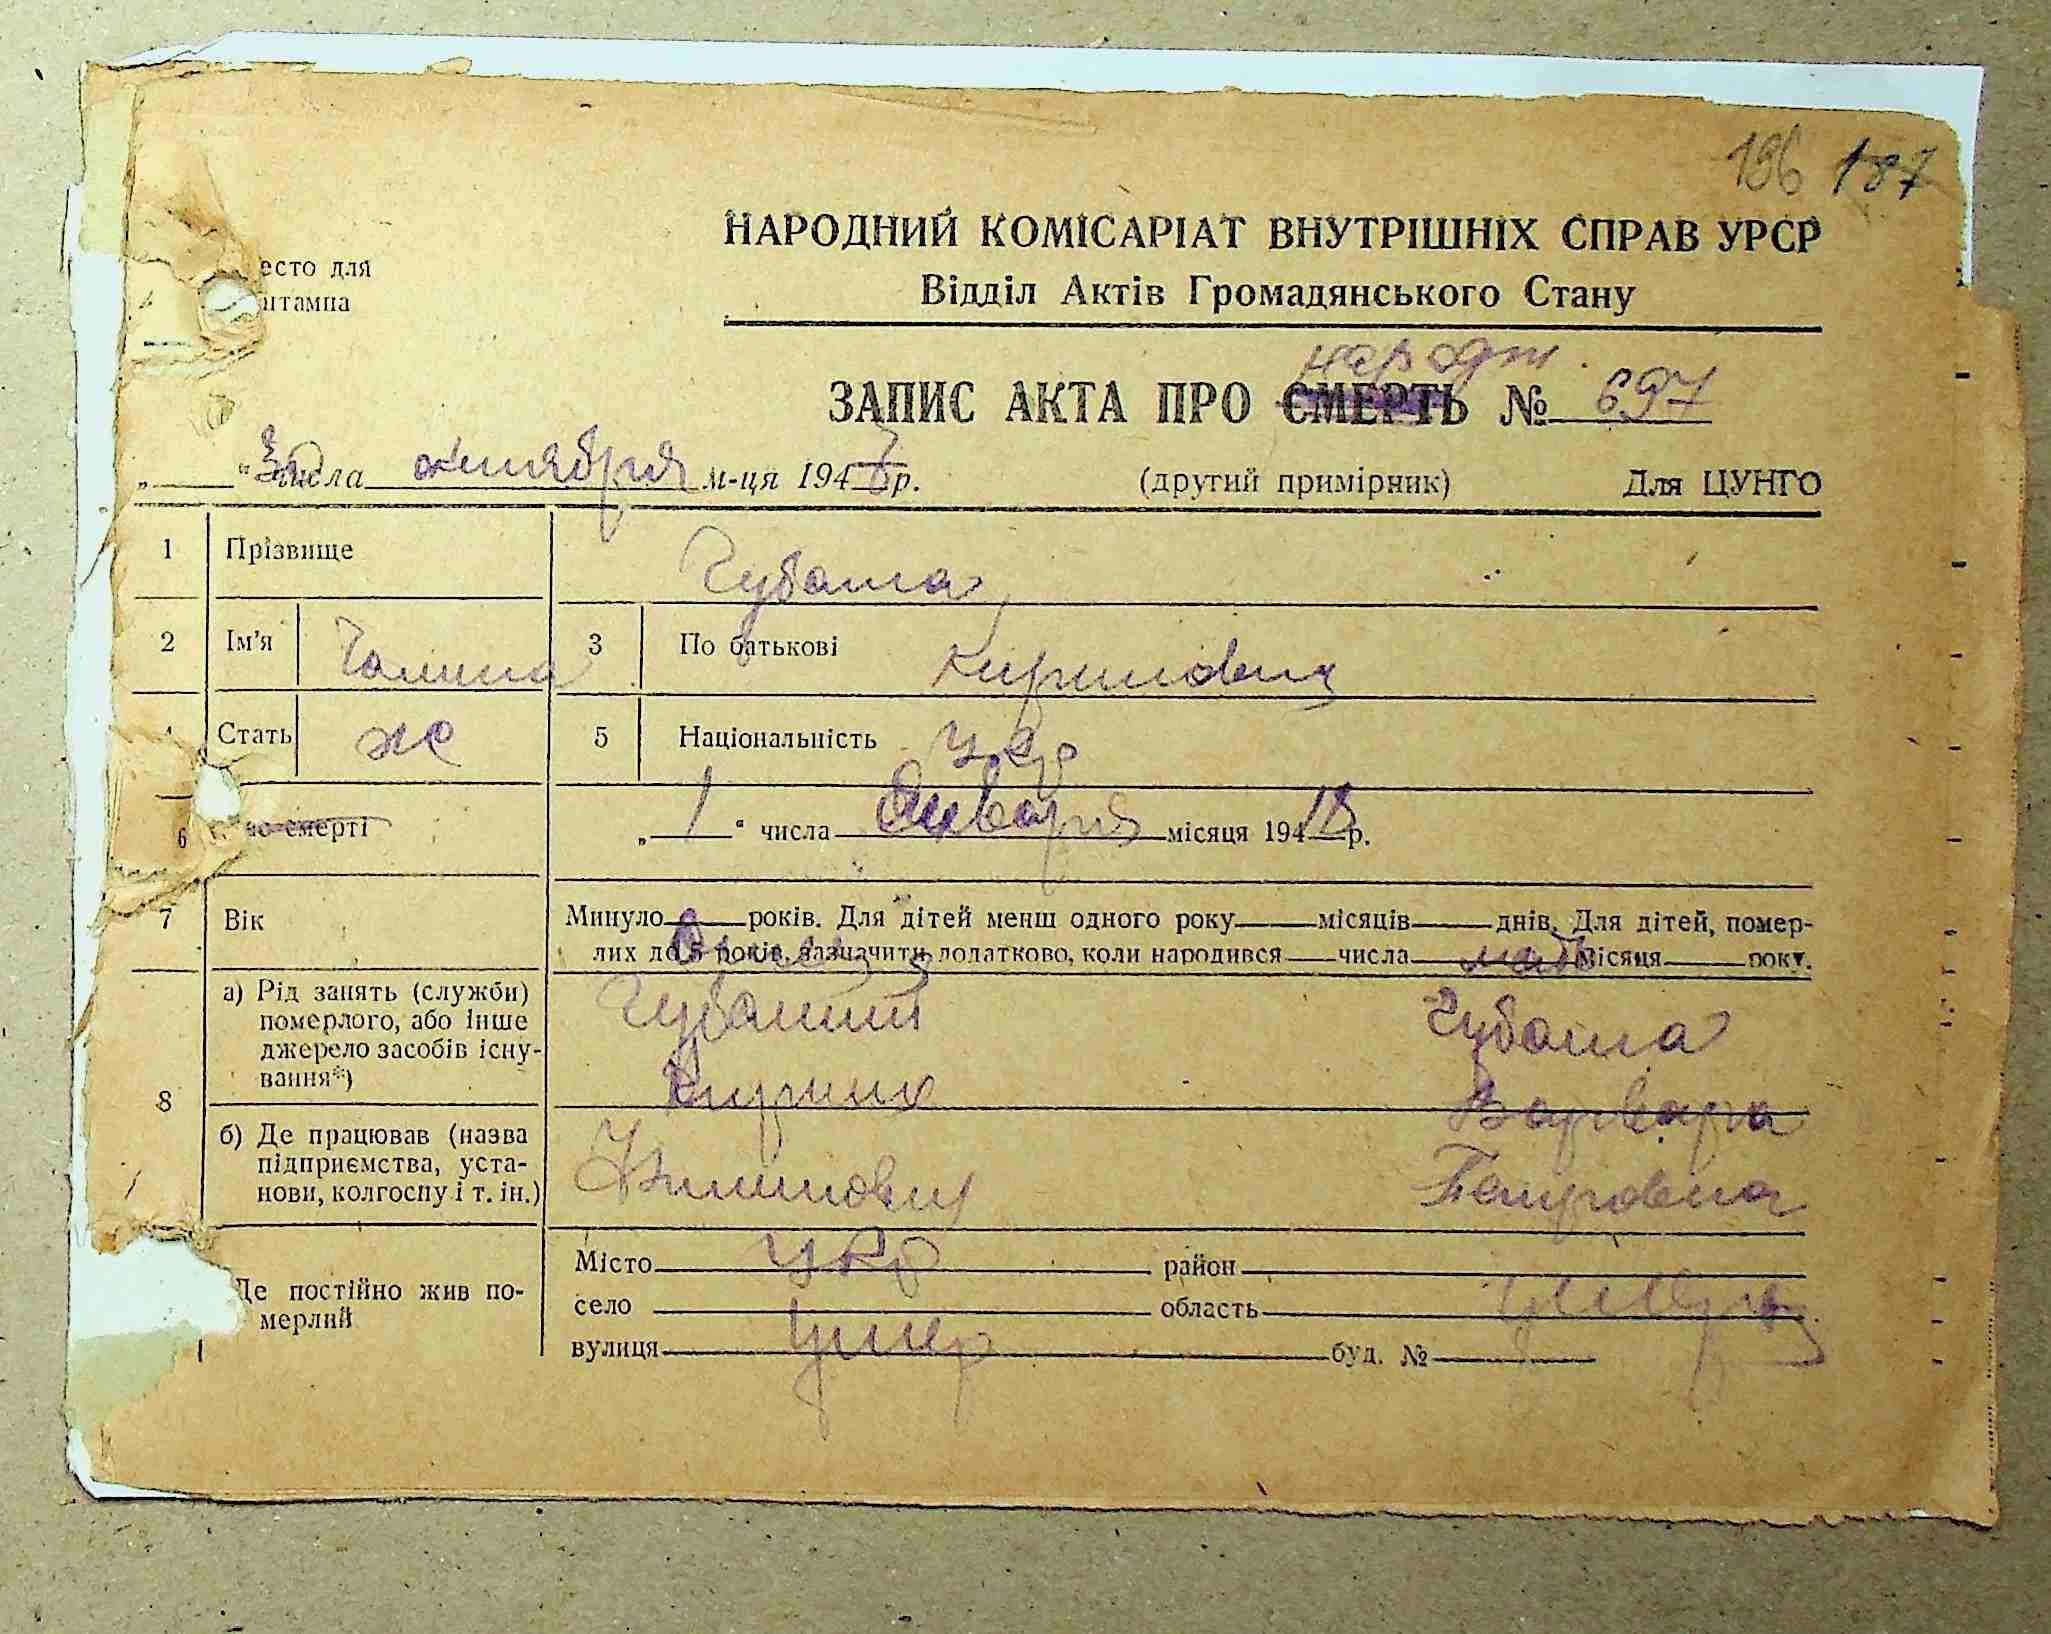 186 187
есто для
штампа
НАРОДНИЙ КОМІСАРІАТ ВНУТРІШНІХ СПРАВ УРСР
Відділ Актів Громадянського Стану
народж.
ЗАПИС АКТА ПРО СМЕРТЬ № 697
„ “ 30 числа октября м-ця 194 р.
(другий примірник) Для ЦУНГО
1 Прізвище Губаша
2 Ім'я Галина 3 По батькові Кирилловна
Стать ж 5 Національність укр
6 смерті „ 1 “ числа Января місяця 194 18 р.
7 Вік Минуло років. Для дітей менш одного року місяців днів. Для дітей, помер-
лих до 5 років, зазначити додатково, коли народився числа місяця року.
Отец мать
8 а) Рід занять (служби)
померлого, або інше
джерело засобів існу-
вання*)
Губаший Губаша
Кирилл Варвара
б) Де працював (назва
підприємства, уста-
нови, колгоспу і т. ін.)
Петровна
Де постійно жив по-
мерлий
Місто укр район
село область
вулиця буд. №